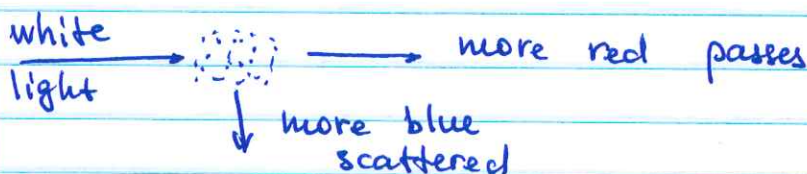 white
light
more red passes
more blue
scattered